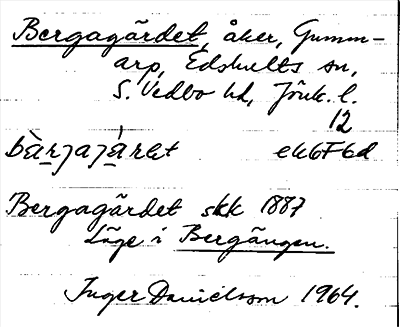 Bergagärdet, åker, Gumm-
arp, Edshults sn,
S. Vedbo hd, Jönk. l.
12
bàrjajáret ek6F6d
Bergagärdet skk 1887
Läge i Bergängen.
Inger Danielsson 1964.